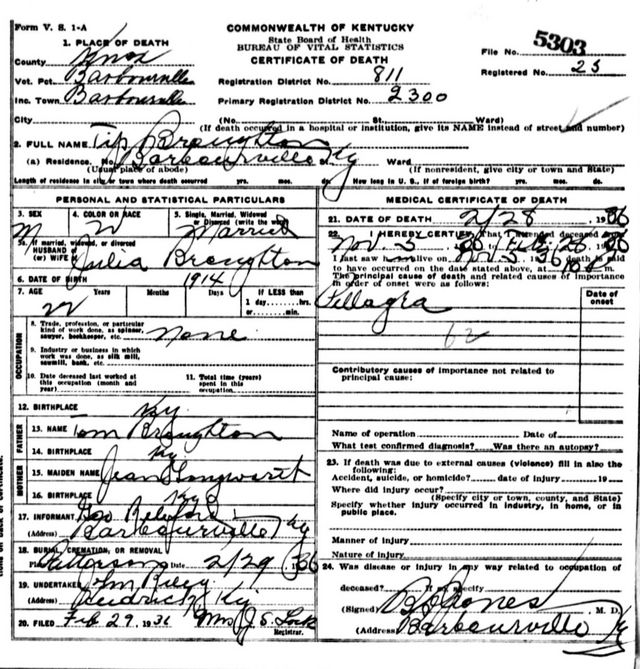 Form V. S. 1-A
COMMONWEALTH OF KENTUCKY
State Board of Health
BUREAU OF VITAL STATISTICS
CERTIFICATE OF DEATH
File No. 5303
Registered No. 25
1. PLACE OF DEATH
County Knox
Vot. Pct. Barbourville
Inc. Town Barbourville
Registration District No. 811
Primary Registration District No. 2300
City (No. St. Ward)
(If death occurred in a hospital or institution, give its NAME instead of street and number)
2. FULL NAME Tip Broughton
(a) Residence. No. Barbourville Ky Ward
(Usual place of abode) (If nonresident, give city or town and State)
Length of residence in city or town where death occurred yrs. mos. ds. How long in U. S., if of foreign birth? yrs. mos. ds.
PERSONAL AND STATISTICAL PARTICULARS
3. SEX 4. COLOR OR RACE 5. Single, Married, Widowed or Divorced (write the word)
M W Married
5a. If married, widowed, or divorced
HUSBAND of
(or) WIFE of Julia Broughton
6. DATE OF BIRTH 1914
7. AGE Years Months Days If LESS than
22 1 day, hrs.
or min.
OCCUPATION
8. Trade, profession, or particular
kind of work done, as spinner,
sawyer, bookkeeper, etc. None
9. Industry or business in which
work was done, as silk mill,
sawmill, bank, etc.
10. Date deceased last worked at
this occupation (month and
year)
11. Total time (years)
spent in this
occupation
12. BIRTHPLACE Ky
FATHER
13. NAME Tom Broughton
14. BIRTHPLACE Ky
MOTHER
15. MAIDEN NAME Jean
16. BIRTHPLACE Ky
17. INFORMANT
(Address) Barbourville Ky
18. BURIAL, CREMATION, OR REMOVAL
Place Patterson Date 2/29 1936
19. UNDERTAKER Riley
(Address) Ky
20. FILED Feb 29, 1936 Mrs J. S. Lock
Registrar.
MEDICAL CERTIFICATE OF DEATH
21. DATE OF DEATH 2/28 1936
22. I HEREBY CERTIFY, That I attended deceased from
Nov. 3 36 Feb. 28 36
I last saw him alive on Nov. 3 36 death is said
to have occurred on the date stated above, at 10 m.
The principal cause of death and related causes of importance
in order of onset were as follows:
Date of
onset
Pellagra
62
Contributory causes of importance not related to
principal cause:
Name of operation Date of
What test confirmed diagnosis? Was there an autopsy?
23. If death was due to external causes (violence) fill in also the
following:
Accident, suicide, or homicide? date of injury 19
Where did injury occur?
(Specify city or town, county, and State)
Specify whether injury occurred in industry, in home, or in
public place.
Manner of injury
Nature of injury
24. Was disease or injury in any way related to occupation of
deceased? If so specify
(Signed) Jones, M. D.
(Address) Barbourville Ky